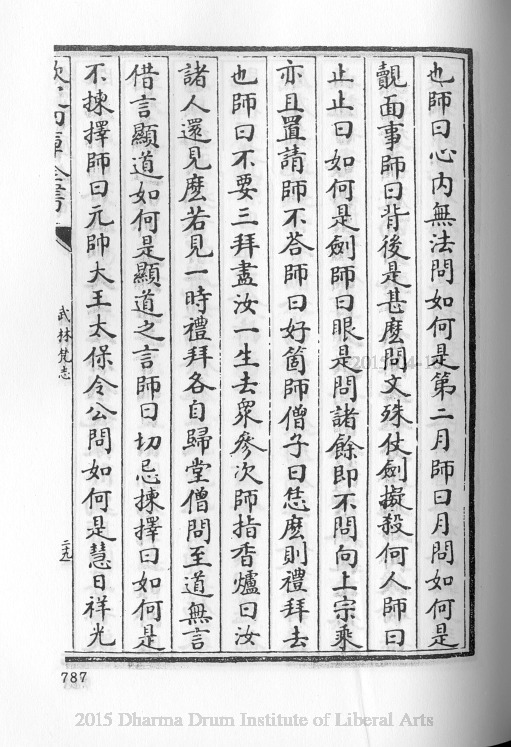 也師曰心內無法問如何是第二月師曰月問如何是
覿面事師曰背後是甚麽問文殊仗劍擬殺何人師曰
止止曰如何是劍師曰眼是問諸餘即不問向上宗乘
亦且置請師不答師曰好箇師僧子曰恁麽則禮拜去
也師曰不要三拜盡汝一生去衆參次師指香爐曰汝
諸人還見麽若見一時禮拜各自歸堂僧問至道無言
借言顯道如何是顯道之言師曰切忌揀擇曰如何是
不揀擇師曰元帥大王太保令公問如何是慧日祥光
武林梵志
二九
787
2015 Dharma Drum Institute of Liberal Arts